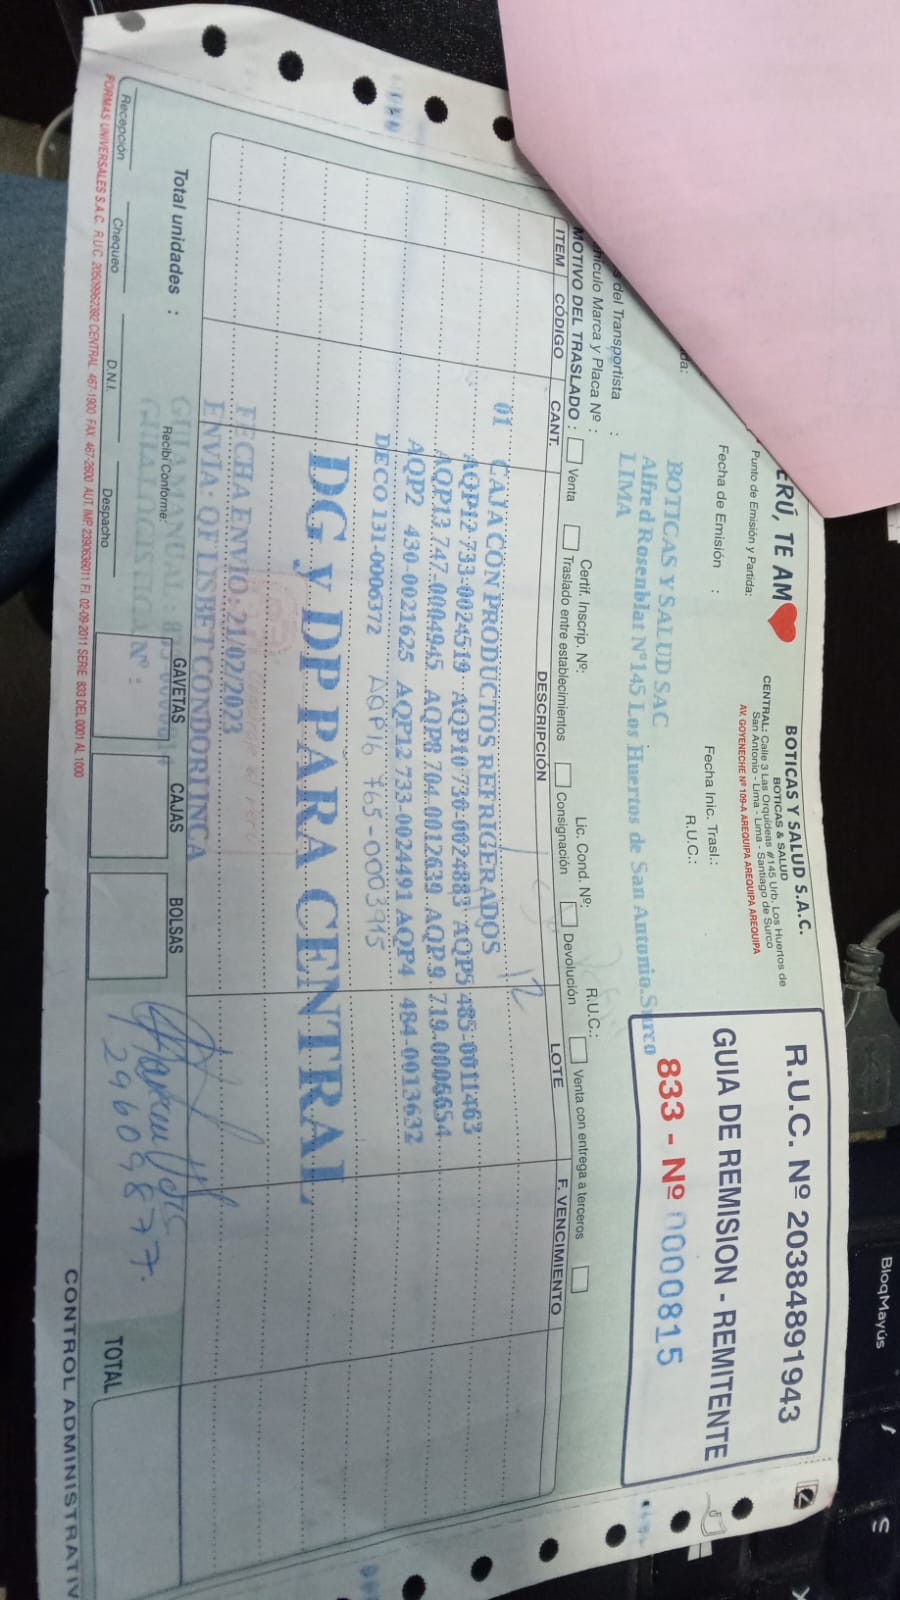 ERÚ, TE AM
BOTICAS Y SALUD S.A.C.
BOTICAS & SALUD
CENTRAL: Calle 3 Las Orquídeas #145 Urb. Los Huertos de
San Antonio - Lima - Lima - Santiago de Surco
AV. GOYENECHE Nº 109-A AREQUIPA AREQUIPA AREQUIPA
R.U.C. Nº 20384891943
GUIA DE REMISION - REMITENTE
833 - Nº 0000815
Punto de Emisión y Partida:
Fecha de Emisión :
Fecha Inic. Trasl.:
R.U.C.:
da:
BOTICAS Y SALUD SAC
Alfred Rosenblat Nº145 Los Huertos de San Antonio.Surco
LIMA
s del Transportista :
R.U.C.:
hiculo Marca y Placa Nº :
Certif. Inscrip. Nº:
Lic. Cond. Nº:
MOTIVO DEL TRASLADO : Venta Traslado entre establecimientos Consignación Devolución Venta con entrega a terceros
ITEM CÓDIGO CANT. DESCRIPCIÓN LOTE F. VENCIMIENTO
12
01 CAJA CON PRODUCTOS REFRIGERADOS
AQP12 733-0024519 AQP10 730-0024883 AQP5 485-0011463
AQP13 747-0004945 AQP8 704-0012639 AQP 9 719-0006654
AQP2 430-0021625 AQP12 733-0024491 AQP4 484-0013632
DECO 131-0006372 AQP16 765-0003915
DG y DP PARA CENTRAL
FECHA ENVIO: 21/02/2023
ENVIA: QF LISBET CONDORI INCA
Total unidades :
GUIA MANUAL:
Recibí Conforme:
Nº :
GAVETAS CAJAS BOLSAS
29609877.
TOTAL
Recepción Chequeo D.N.I. Despacho
FORMAS UNIVERSALES S.A.C. R.U.C. 20509962392 CENTRAL 467-1900 FAX 467-2600 AUT. IMP. 2390636011 F.I. 02-09-2011 SERIE 833 DEL 0001 AL 1000
CONTROL ADMINISTRATIV
BloqMayús
S